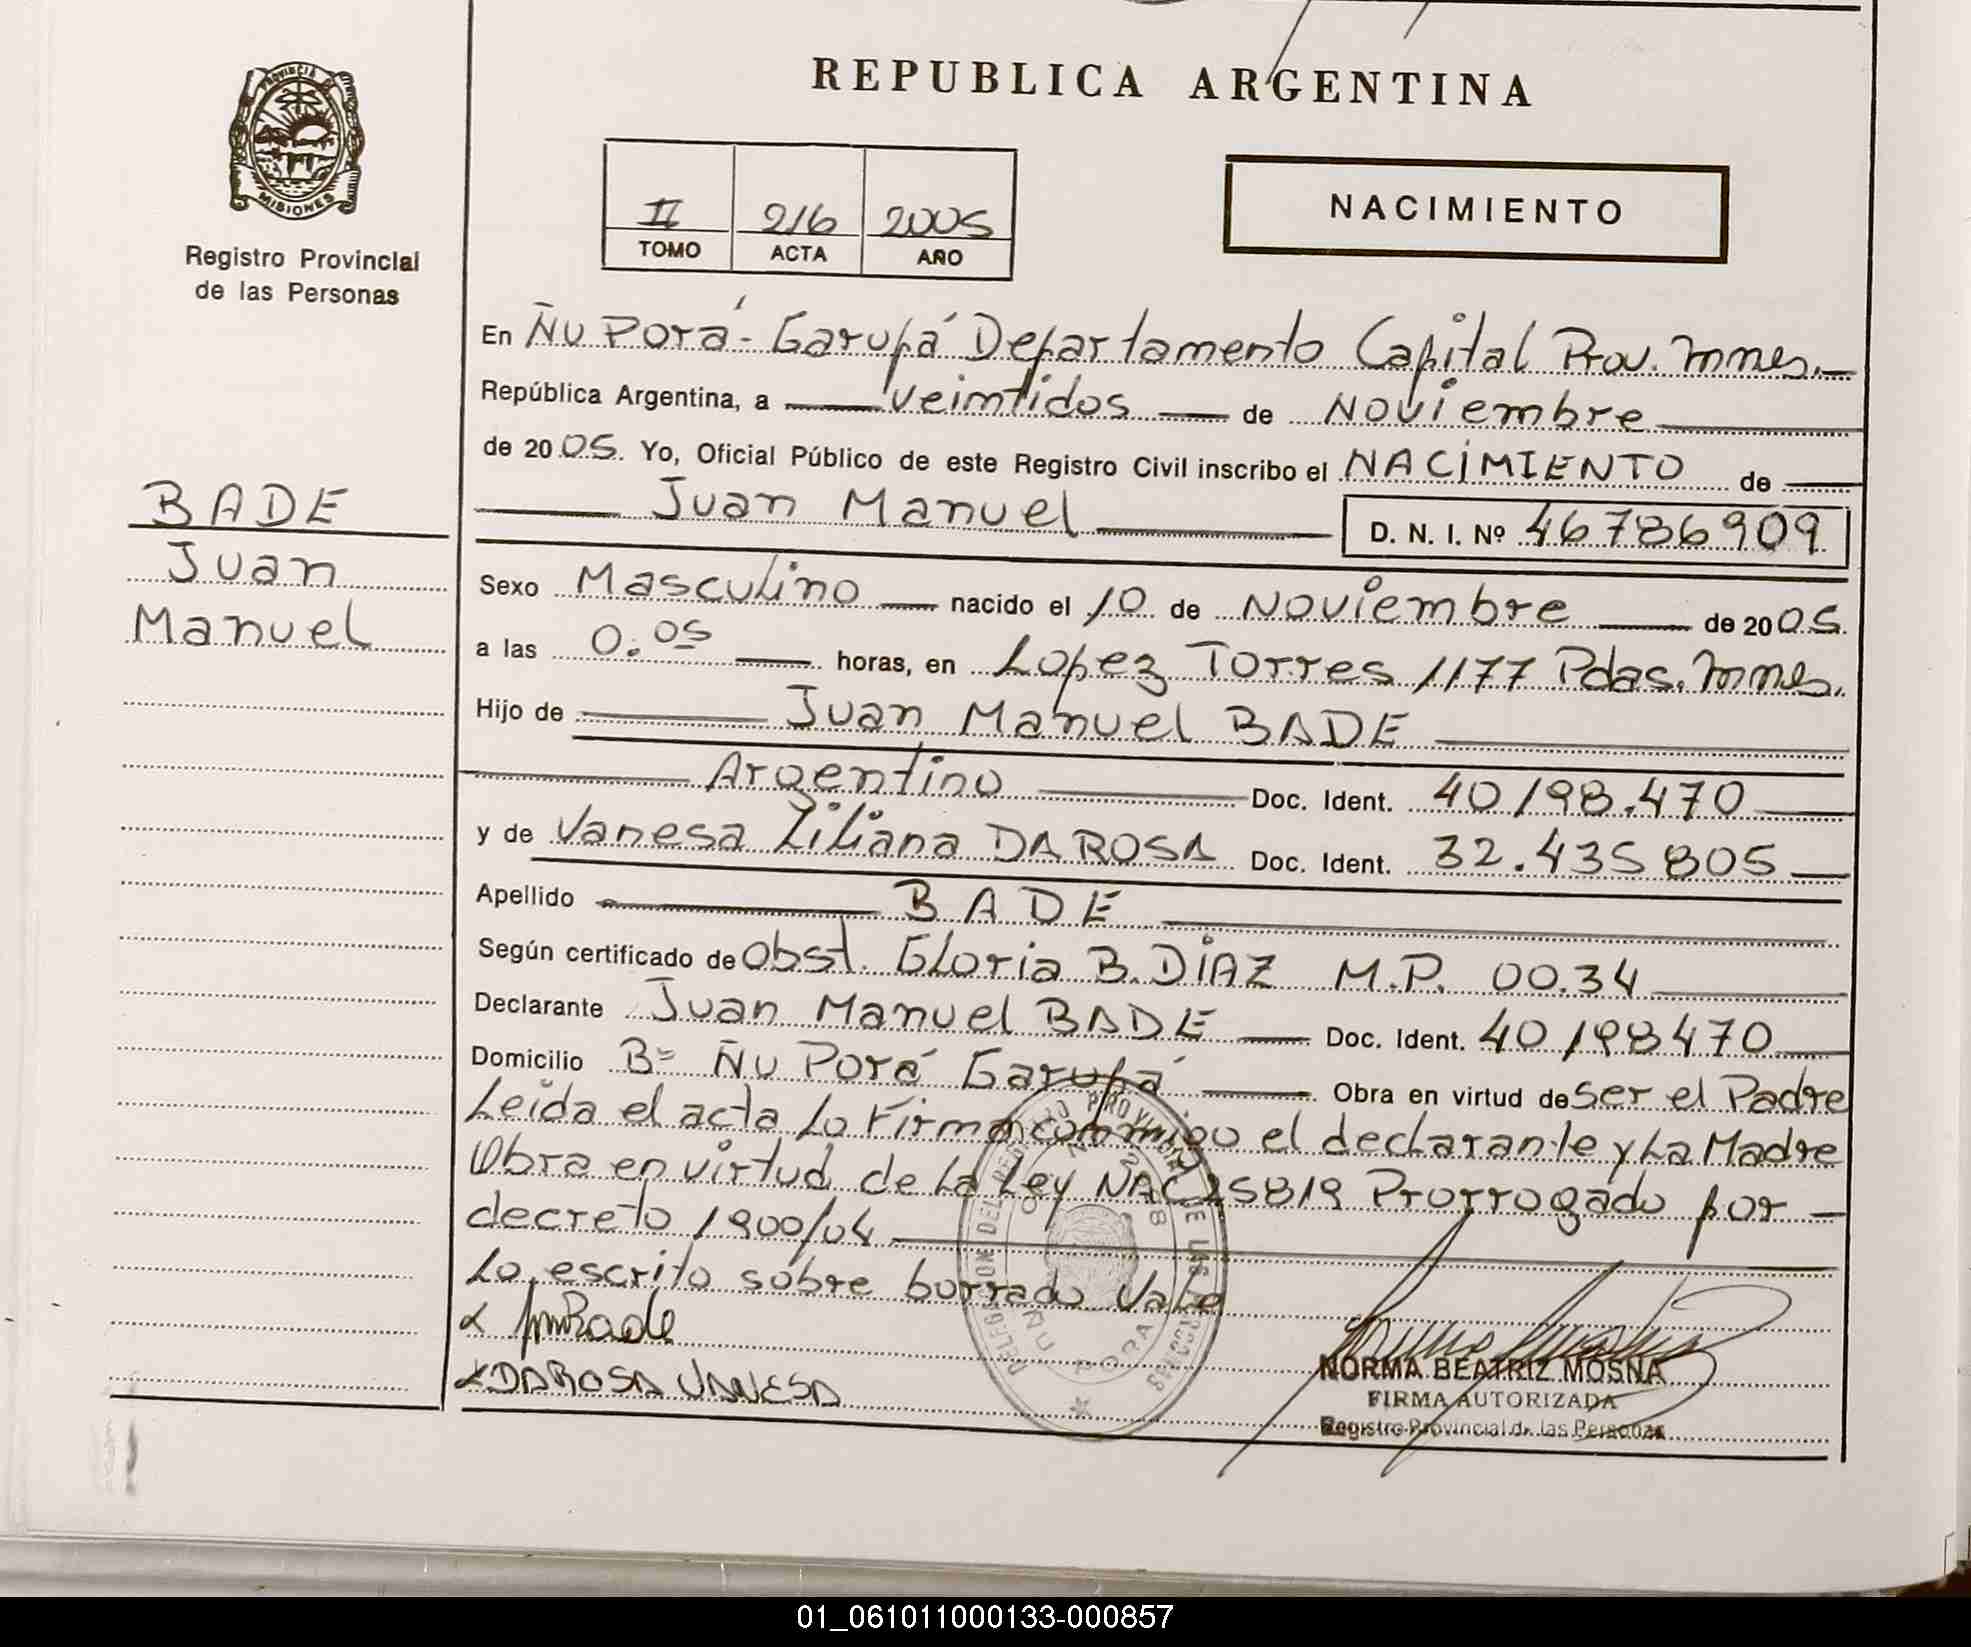 REPUBLICA ARGENTINA
PROVINCIA
MISIONES
Registro Provincial
de las Personas
II 216 2005
TOMO ACTA AÑO
NACIMIENTO
BADE
Juan
Manuel
En Ñu Porá - Garupá Departamento Capital Prov. Mnes.
República Argentina, a veintidos de Noviembre
de 2005. Yo, Oficial Público de este Registro Civil inscribo el NACIMIENTO de
Juan Manuel D. N. I. Nº 46786909
Sexo Masculino nacido el 10 de Noviembre de 2005.
a las 0:05 horas, en Lopez Torres 1177 Pdas. Mnes.
Hijo de Juan Manuel BADE
Argentino Doc. Ident. 40198.470
y de Vanesa Liliana DA ROSA Doc. Ident. 32.435805
Apellido BADE
Según certificado de Obst. Gloria B. DIAZ M.P. 00.34
Declarante Juan Manuel BADE Doc. Ident. 40198470
Domicilio Bº Ñu Porá Garupá Obra en virtud de Ser el Padre
Leida el acta Lo Firman conmigo el declarante y La Madre
Obra en virtud de La Ley NAC 25819 Prorrogado por
decreto 1900/04
Lo escrito sobre borrado Vale
x JMBade
x DAROSA VANESA
DELEGACION DEL REGISTRO PROVINCIAL DE LAS PERSONAS
ÑU PORA
NORMA BEATRIZ MOSNA
FIRMA AUTORIZADA
Registro Provincial de las Personas
01_061011000133-000857